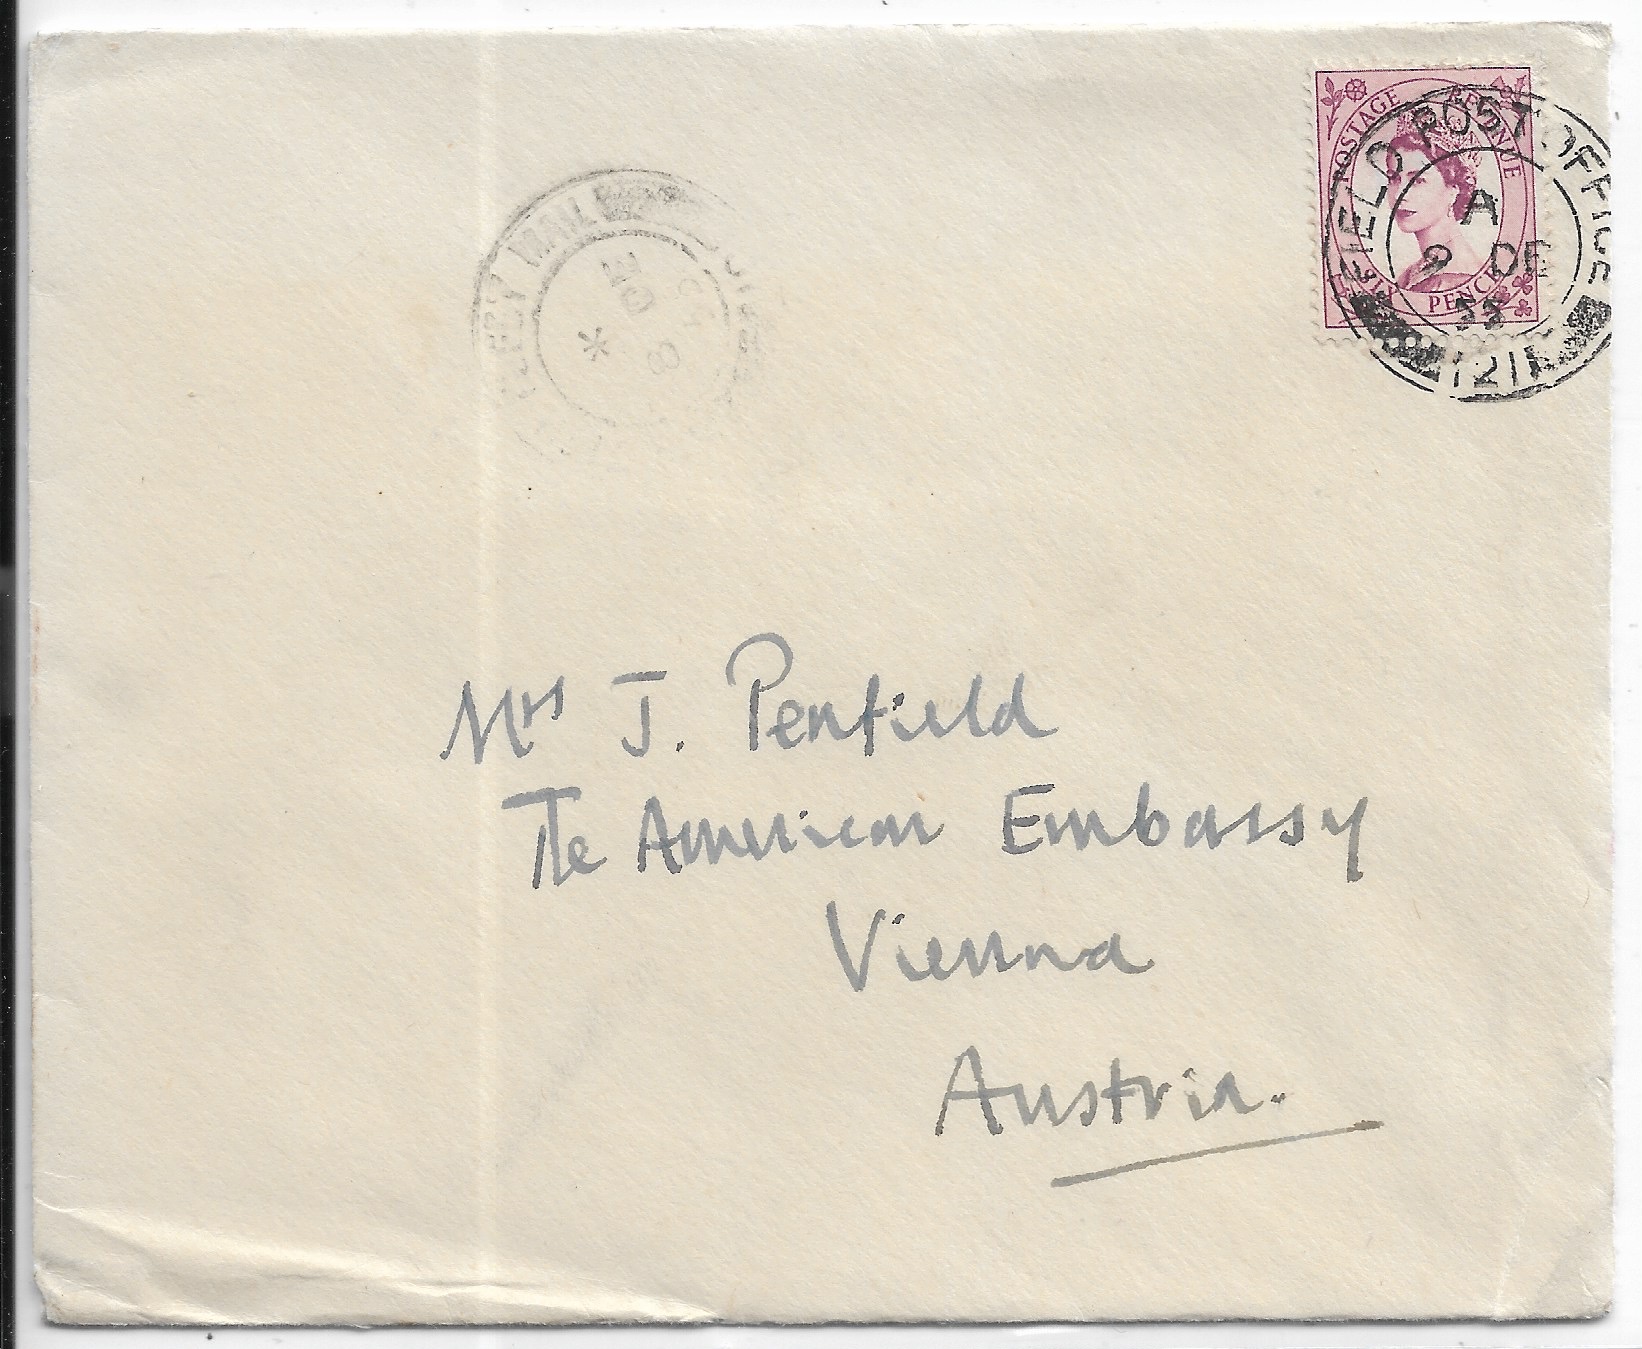 POSTAGE REVENUE
SIX PENCE
FIELD POST OFFICE
A
9 DE
55
FLEET MAIL OFFICE
8 DE
*
Mrs J. Penfield
The American Embassy
Vienna
Austria.